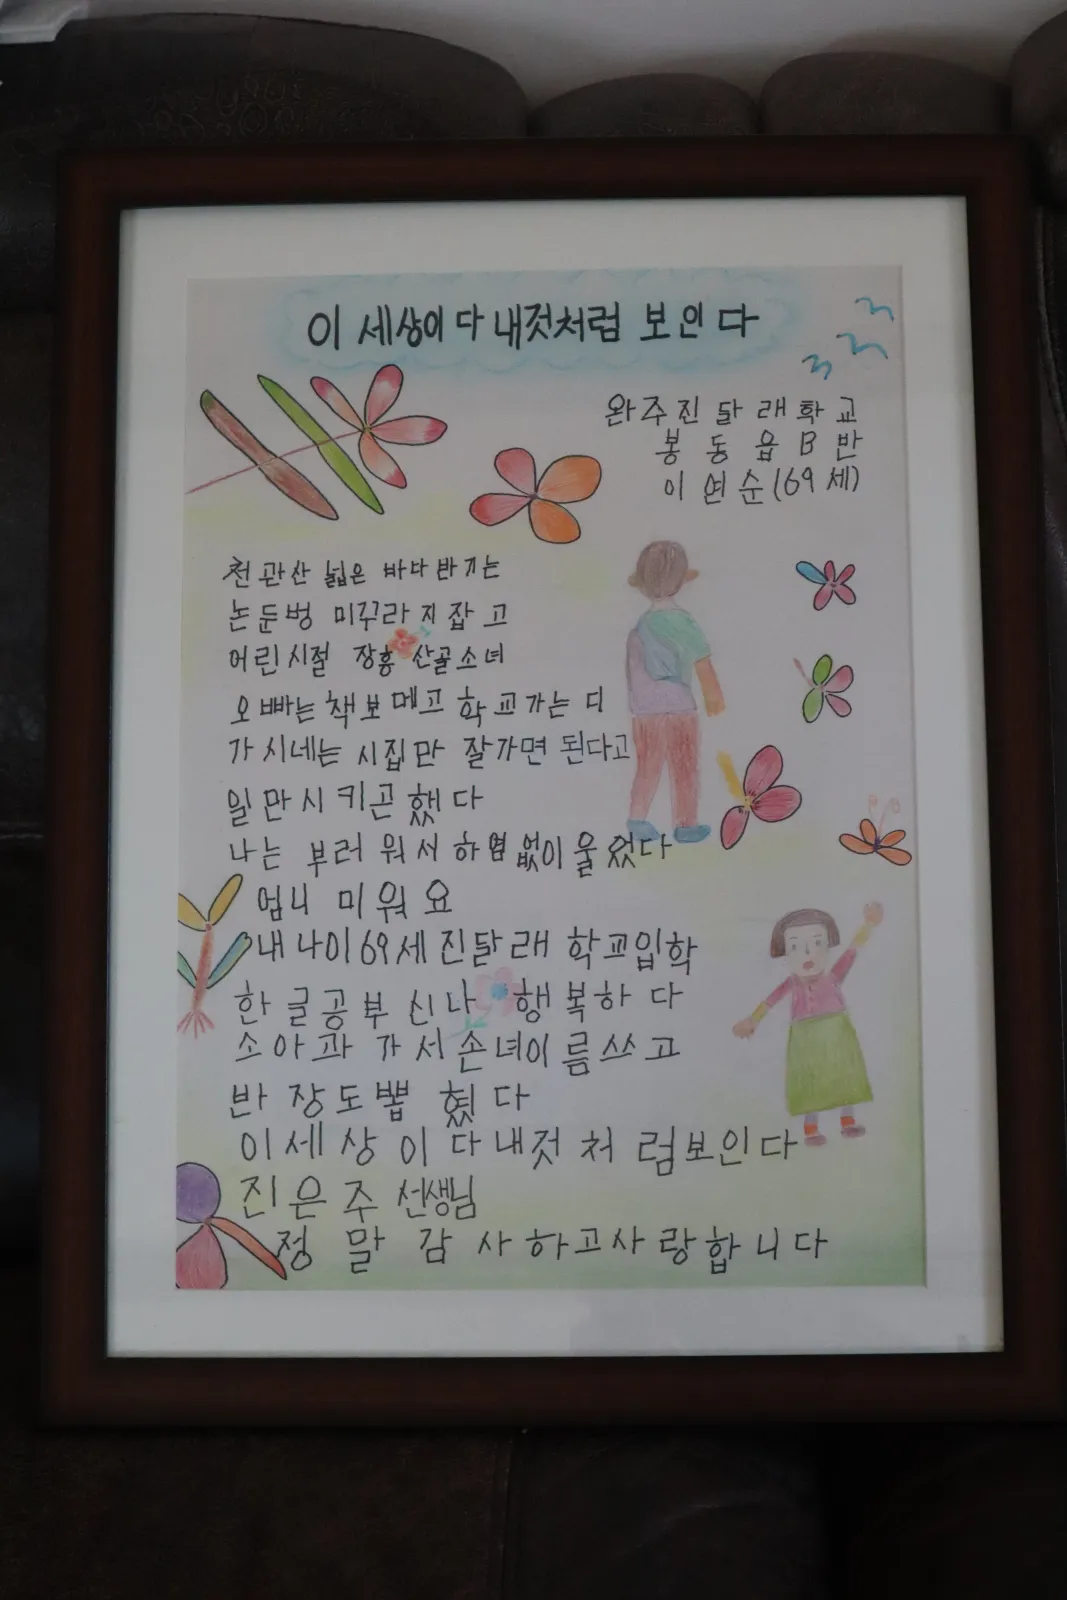 이 세상이 다 내것처럼 보인다
완주진달래학교
봉동읍B반
이연순(69세)
천관산 넓은 바다반기는
논둔벙 미꾸라지잡고
어린시절 장흥 산골소녀
오빠는 책보메고 학교가는디
가시네는 시집만 잘가면 된다고
일만시키곤했다
나는 부러워서 하염없이울었다
엄니 미워요
내나이69세진달래 학교입학
한글공부 신나 행복하다
소아과 가서손녀이름쓰고
반장도뽑혔다
이세상이다내것처럼보인다
진은주 선생님
정말감사하고사랑합니다